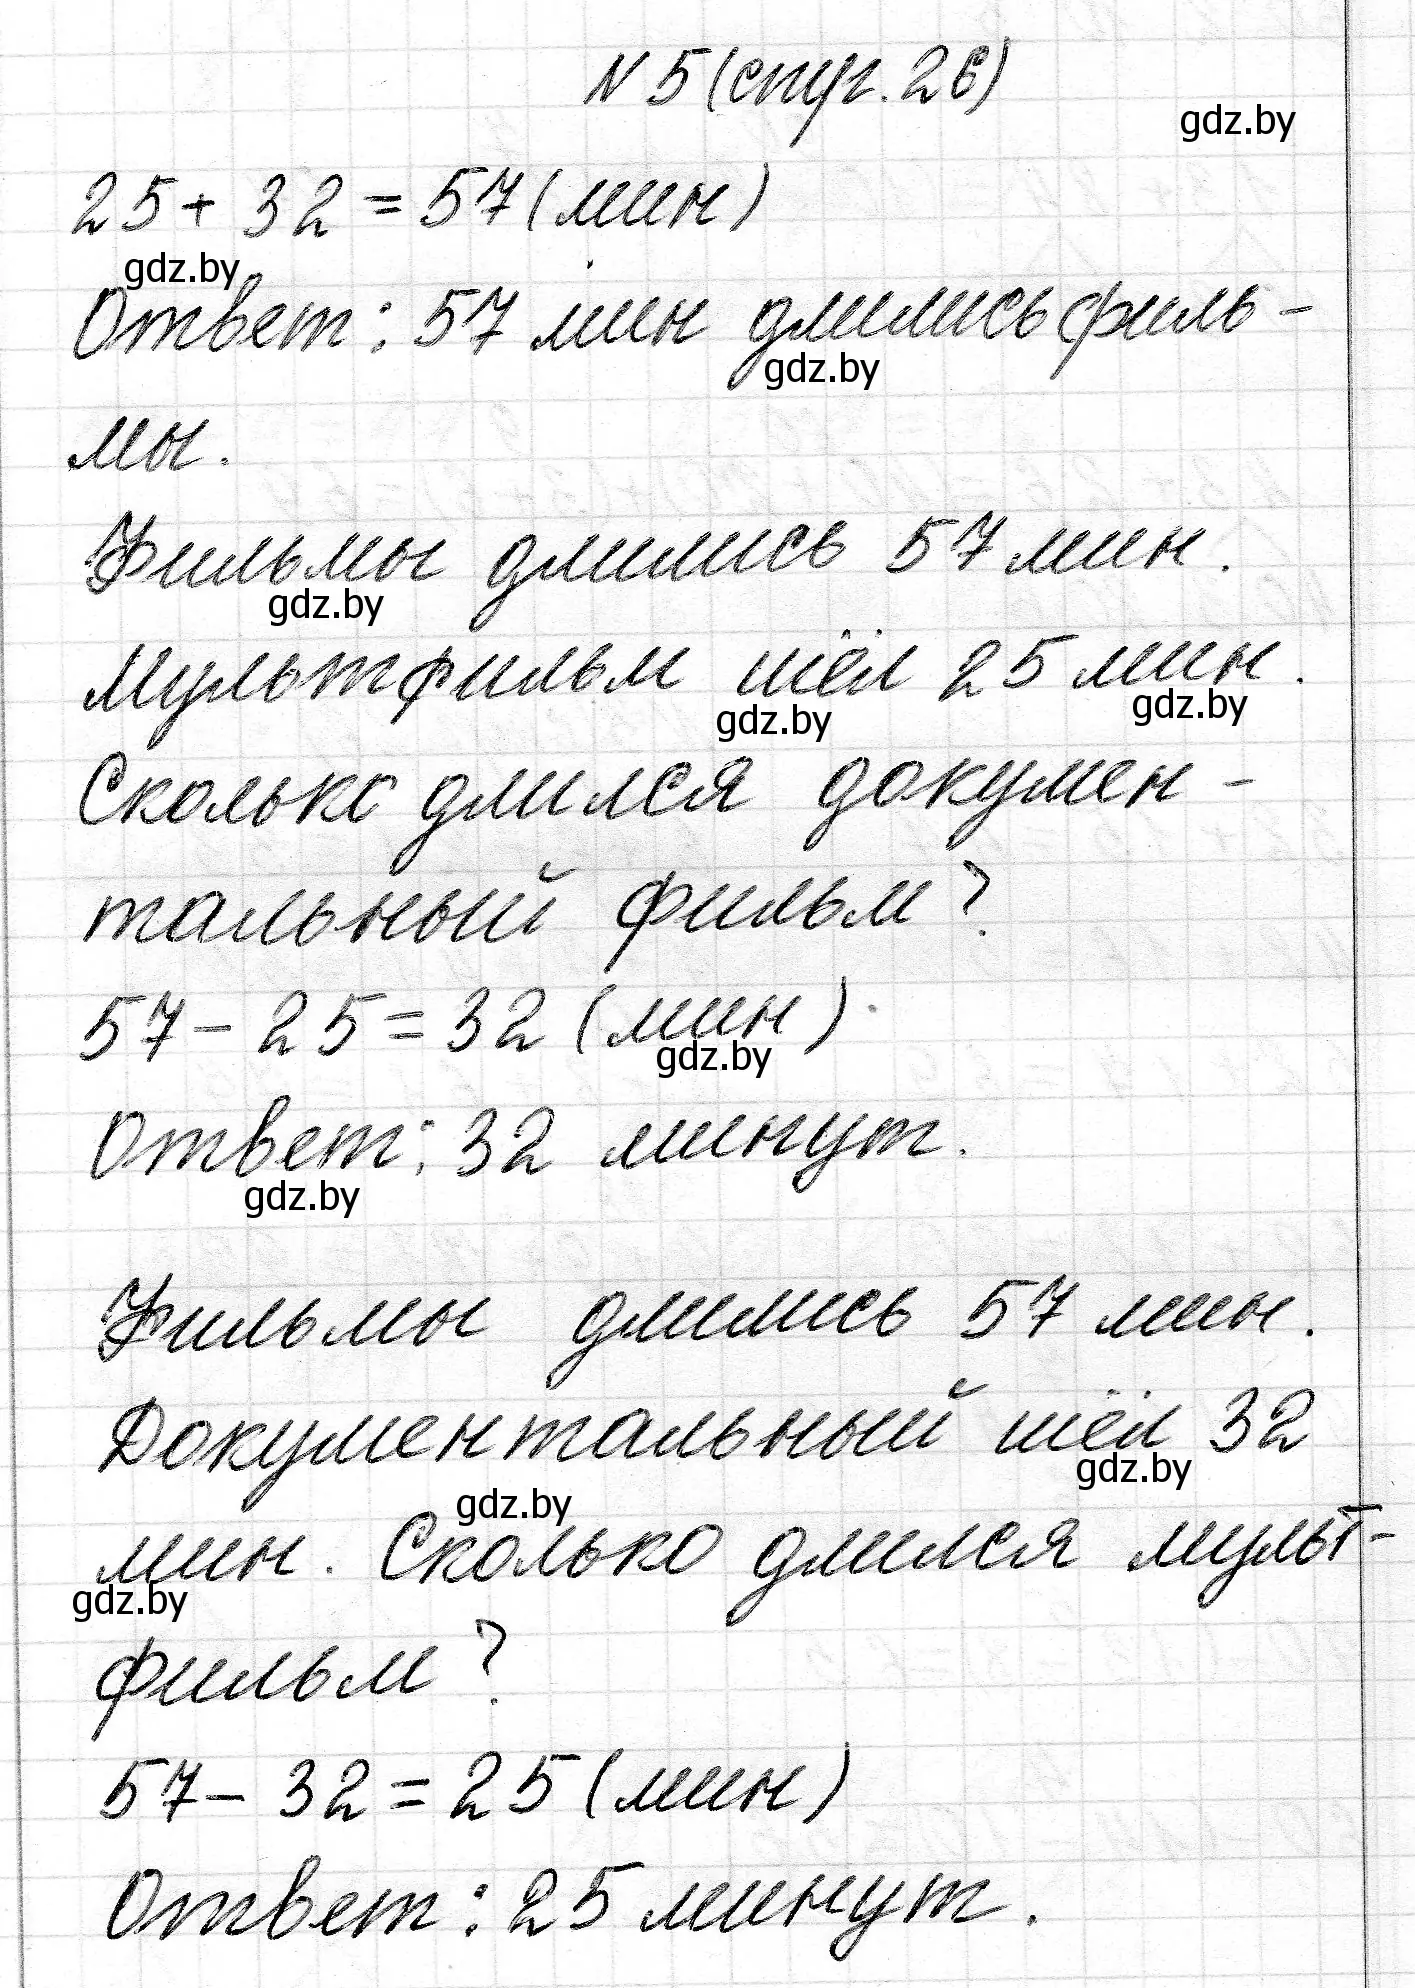 N 5 (стр. 26)
gdz.by
25 + 32 = 57 (мин)
gdz.by
Ответ: 57 мин длились филь-
gdz.by
мы.
Фильмы длились 57 мин.
gdz.by
Мультфильм шёл 25 мин.
gdz.by
gdz.by
Сколько длился докумен-
тальный фильм?
57 - 25 = 32 (мин).
gdz.by
Ответ: 32 минут.
gdz.by
Фильмы длились 57 мин.
Документальный шёл 32
gdz.by
gdz.by
мин. Сколько длился мульт-
gdz.by
фильм?
57 - 32 = 25 (мин)
Ответ: 25 минут.